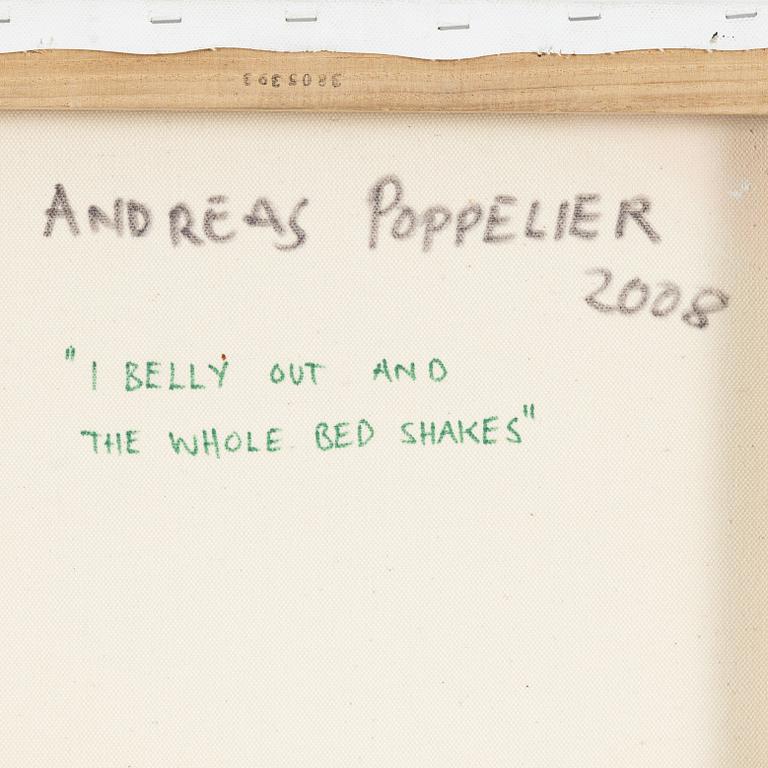 3805303
ANDREAS POPPELIER
2008
"I BELLY OUT AND
THE WHOLE BED SHAKES"